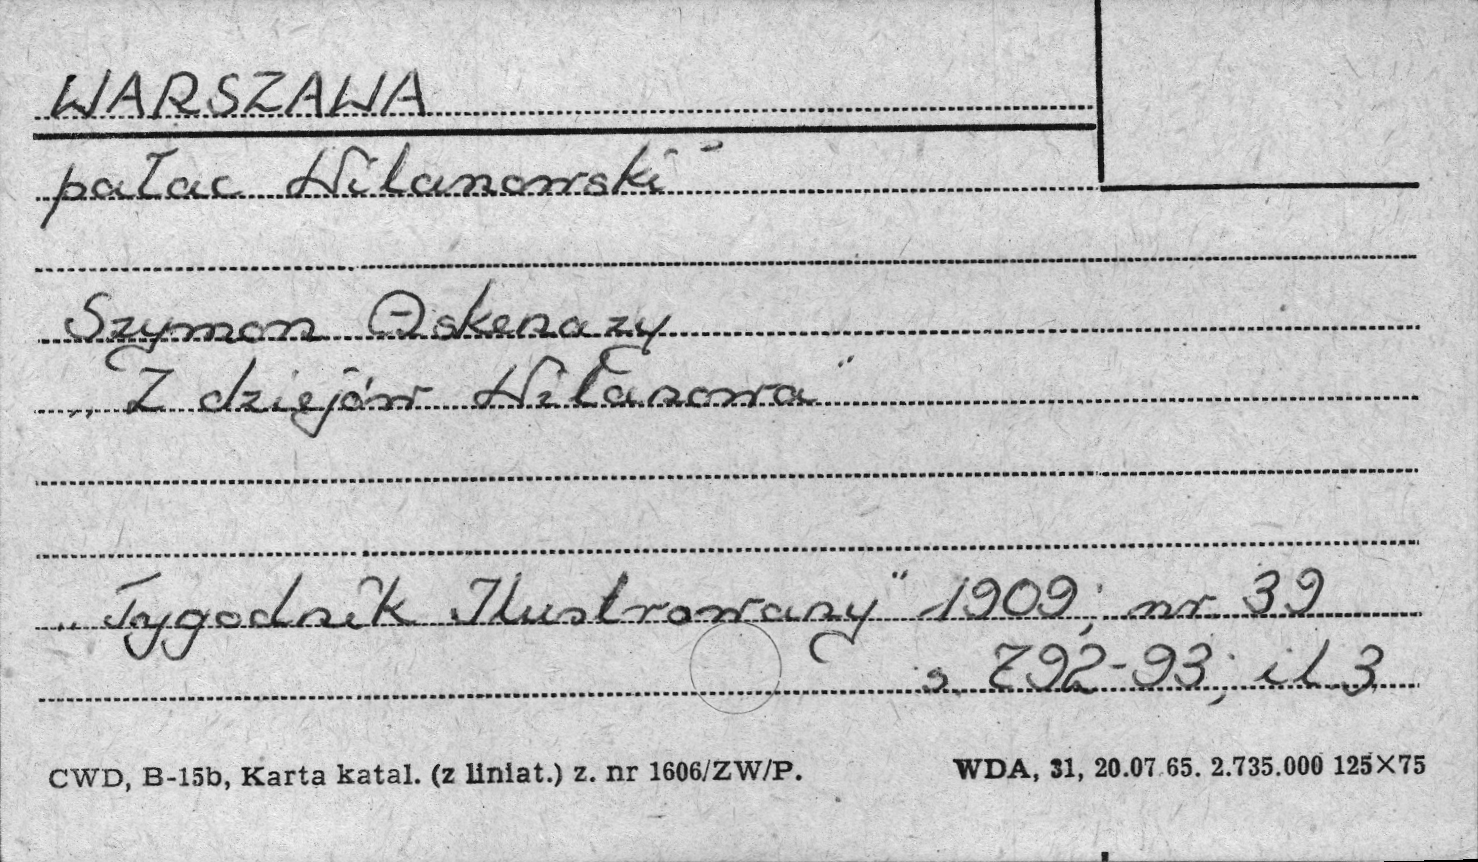 WARSZAWA
pałac Wilanowski
Szymon Askenazy
„Z dziejów Wilanowa"
„Tygodnik Ilustrowany" 1909; nr 39
s. 792-93; il. 3
CWD, B-15b, Karta katal. (z liniat.) z. nr 1606/ZW/P.
WDA, 31, 20.07.65. 2.735.000 125×75